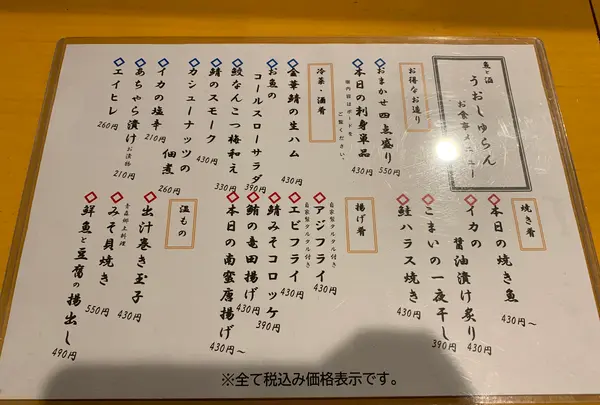 魚と酒
うおしゅらん
お食事メニュー
お得なお造り
おまかせ四点盛り
550円
本日の刺身単品
430円〜
冷菜・酒肴
金華鯖の生ハム
430円
お魚の
コールスローサラダ
390円
鮫なんこつ梅和え
330円
鯖のスモーク
430円
カシューナッツの
佃煮
260円
イカの塩辛
210円
あちゃら漬け
お漬物
210円
エイヒレ
260円
焼き肴
本日の焼き魚
430円〜
イカの
醤油漬け炙り
430円
こまいの一夜干し
390円
鮭ハラス焼き
430円
揚げ肴
アジフライ
自家製タルタル付き
430円
エビフライ
自家製タルタル付き
430円
鯖みそコロッケ
390円
鮪の竜田揚げ
430円
本日の南蛮唐揚げ
430円〜
温もの
出汁巻き玉子
430円
青森郷土料理
みそ貝焼き
550円
鮮魚と豆腐の揚出し
490円
※全て税込み価格表示です。